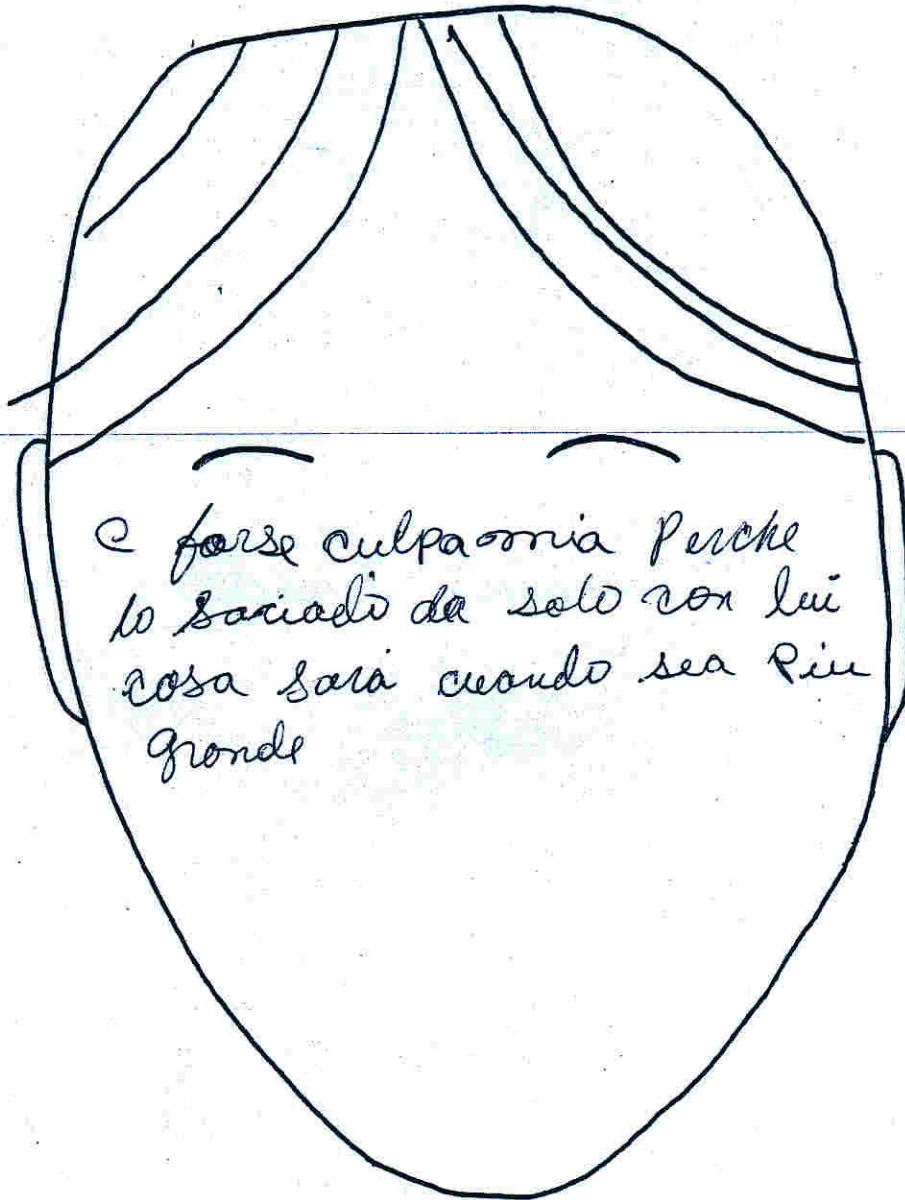 e forse culpa mia Perche
lo sasciado da solo con lui
cosa sará cuando sea Piu
grande